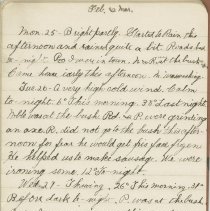 Feb, & Mar.
Mon. 25 - Bright partly. Started to Rain this
afternoon and rained quite a bit. Roads bad
to-night. Do I over in town. W. & R. at the bush
Cam here early this afternoon.
Tues. 26 - A very high cold wind. Calm
to-night. 6° this morning. 28° last night
Noble was at the bush Rd. & P. were grinding
an axe. R. did not go to the bush this after-
noon for fear he would get fingers frozen
He helped us to make sausage. We were
ironing some. 12° to-night.
Wed. 27 - Thawing, 26° this morning. 38°
Before dark to-night. P. was at the bush